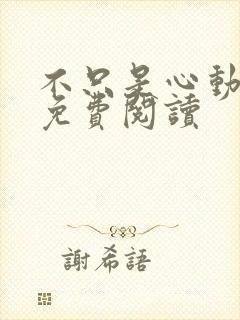 不只是心動
免費閱讀
謝希語